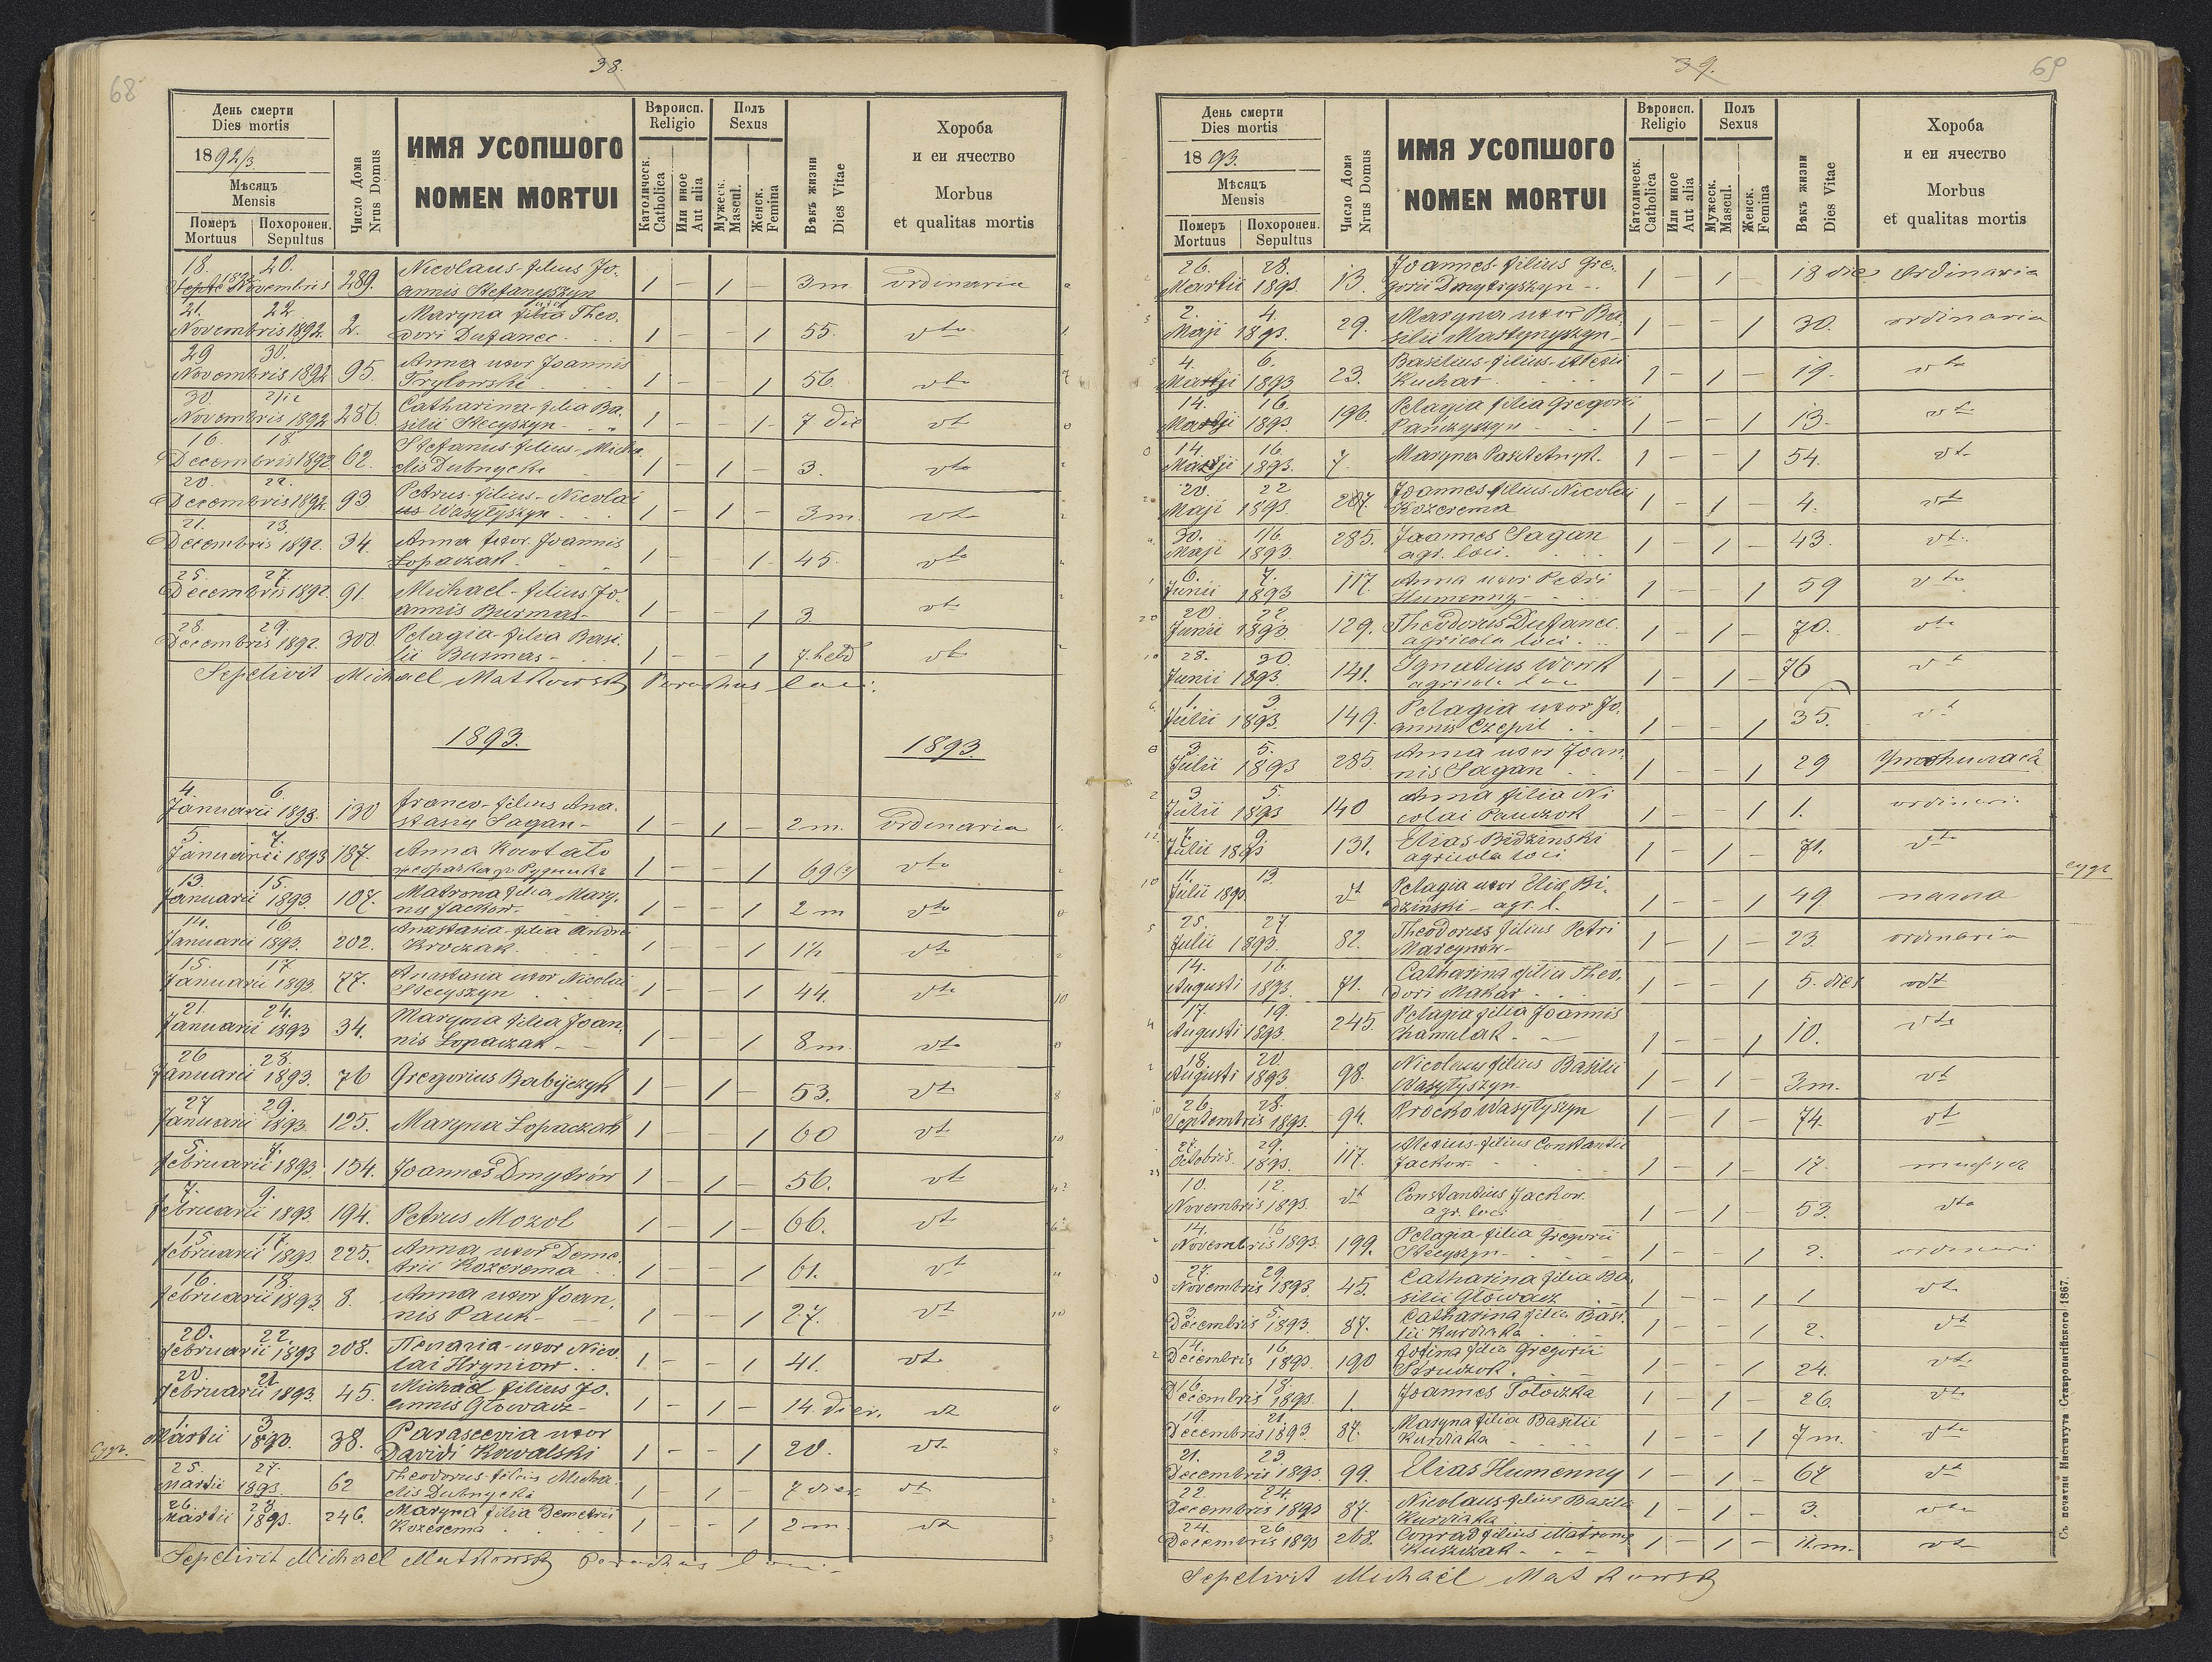 68
38.
День смерти
Dies mortis
1892/3.
Мѣсяцъ
Mensis
Померъ Похоронен.
Mortuus Sepultus
Число Дома
Nrus Domus
ИМЯ УСОПШОГО
NOMEN MORTUI
Вѣроисп.
Religio
Католическ.
Catholica
Или иное
Aut alia
Полъ
Sexus
Мужеск.
Mascul.
Женск.
Femina
Вѣкъ жизни
Dies Vitae
Хороба
и еи ячество
Morbus
et qualitas mortis
18. 20. Nicolaus filius Jo-
Novembris 289. annis Stefanyszyn 1 - 1 - 3 m ordinaria
21. 22. Maryna uxor Theo-
Novembris 1892. 2. dori Dufanec 1 - - 1 55. dto
29 30. Anna uxor Joannis
Novembris 1892 95. Trylowski 1 - - 1 56 dto
30. 2/12 Catharina filia Ba-
Novembris 1892 286. silii Stecyszyn 1 - - 1 7 die dt
16. 18. Stefanus filius Micha-
Decembris 1892 62. elis Dubnycki 1 - 1 - 3. dto
20. 22. Petrus filius Nicolai
Decembris 1892. 93 Wasylyszyn 1 - 1 - 3 m. dt
21. 23. Anna uxor Joannis
Decembris 1892. 34. Lopaczak 1 - - 1 45. dto
25. 27. Michael filius Jo-
Decembris 1892. 91. annis Burmas 1 - - 1 3 dt
28. 29. Pelagia filia Basi-
Decembris 1892. 300. lii Burmas 1 - - 1 7. hebd dt
Sepelivit Michael Matkowski Parochus loci.
1893. 1893.
4. 6. Franco filius Ana-
Januarii 1893. 130 stasiy Sagan 1 - 1 - 2 m. ordinaria
5. 7. Anna
Januarii 1893 187. 1 - - 1 69 dto
13. 15. Matrona filia Mary-
Januarii 1893. 107. na Jackow 1 - - 1 2 m dto
14. 16. Anastasia filia Andrei
Januarii 1893. 202. Kroczak 1 - - 1 1½ dto
15. 17. Anastasia uxor Nicolai
Januarii 1893. 77. Stecyszyn 1 - - 1 44. dto
21. 24. Maryna filia Joan-
Januarii 1893 34. nis Lopaczak 1 - - 1 8 m. dto
26 28.
Januarii 1893. 76 Gregorius Babijczyk 1 - 1 - 53. dt
27 29.
Januarii 1893. 125. Maryna Lopaczak 1 - - 1 60 dt
5. 7.
Februarii 1893. 154. Joannes Dmytrów 1 - 1 - 56. dt
7. 9.
Februarii 1893. 194. Petrus Mozol 1 - 1 - 66. dt
15. 17. Anna uxor Deme-
Februarii 1893. 225. trii Kozerema 1 - - 1 61. dt
16. 18. Anna uxor Joan-
Februarii 1893. 8. nis Pauk 1 - - 1 27. dt
20. 22. Пелагія uxor Nico-
Februarii 1893 208. lai Hryniow 1 - - 1 41. dto
20. 21 Michael filius Jo-
Februarii 1893. 45. annis Glowacz 1 - 1 - 14. dier. dt
1. 3. Parascevia uxor
Martii 1893. 38. Davidi Kowalski 1 - - 1 20. dt
25. 27. Theodorus filius Micha-
Martii 1893. 62 elis Dubnycki 1 - 1 - 7 dier dt
26. 28. Maryna filia Demetrii
Martii 1893. 246. Kozerema 1 - - 1 2 m. dt
Sepelivit Michael Matkowski Parochus loci
39.
69
День смерти
Dies mortis
1893.
Мѣсяцъ
Mensis
Померъ Похоронен.
Mortuus Sepultus
Число Дома
Nrus Domus
ИМЯ УСОПШОГО
NOMEN MORTUI
Вѣроисп.
Religio
Католическ.
Catholica
Или иное
Aut alia
Полъ
Sexus
Мужеск.
Mascul.
Женск.
Femina
Вѣкъ жизни
Dies Vitae
Хороба
и еи ячество
Morbus
et qualitas mortis
26. 28. Joannes filius Gre-
Martii 1893. 13. gorii Dmytryszyn 1 - 1 - 18 die ordinaria
2. 4. Maryna uxor Ba-
Maji 1893. 29. silii Martynyszyn 1 - - 1 30. ordinaria
4. 6. Basilius filius Alexii
Maji 1893 23. Kuchar 1 - 1 - 19. dto
14. 16. Pelagia filia Gregorii
Maji 1893 196. Panczyszyn 1 - - 1 13. dt
14. 16.
Maji 1893. 7. Maryna 1 - - 1 54. dt
20. 22 Joannes filius Nicolai
Maji 1893. 287. Kozerema 1 - 1 - 4. dt
30. 1/6. Joannes Sagan
Maji 1893. 285. agr. loci 1 - 1 - 43. dt
6. 7. Anna uxor Petri
Junii 1893 117. Humenny 1 - - 1 59 dto
20. 22 Theodorus Dufanec
Junii 1893. 129. agricola loci 1 - 1 - 70. dto
28. 30. Ignatius Wowk
Junii 1893. 141. agricola loci 1 - 1 - 76 dt
1. 3. Pelagia uxor Jo-
Julii 1893. 149. annis Czepil 1 - - 1 35. dt
3. 5. Anna uxor Joan-
Julii 1893 285. nis Sagan 1 - - 1 29
3. 5. Anna filia Ni-
Julii 1893 140 colai Panczak 1 - - 1 1. ordinari
7. 9. Elias Bidzinski
Julii 1893 131. agricola loci 1 - 1 - 71. dto
11. 13. Pelagia uxor Elia Bi-
Julii 1893 dt dzinski agr. l. 1 - - 1 49
25. 27 Theodorus filius Petri
Julii 1893. 82. 1 - 1 - 23. ordinaria
14. 16. Catharina filia Theo-
Augusti 1893. 71. dori Makar 1 - - 1 5. dies dt
17. 19. Pelagia filia Joannis
Augusti 1893. 245. Chamulak 1 - - 1 10. dto
18. 20. Nicolaus filius Basilii
Augusti 1893 98. Wasylyszyn 1 - 1 - 3 m. dt
26. 28.
Septembris 1893. 94. Procko Wasylyszyn 1 - 1 - 74. dt
27. 29. Alexius filius Constantii
Octobris 1893. 117. Jackow 1 - 1 - 17.
10. 12. Constantius Jackow
Novembris 1893. dt agr. loci 1 - 1 - 53. dto
14. 16 Pelagia filia Gregorii
Novembris 1893. 199. Stecyszyn 1 - - 1 2. ordinari
27. 29. Catharina filia Ba-
Novembris 1893. 45. silii Glowacz 1 - - 1 1 dt
3. 5. Catharina filia Basi-
Decembris 1893. 87. lii Kurdiaka 1 - - 1 2. dt
14. 16 Fotina filia Gregorii
Decembris 1893. 190 1 - - 1 24. dt
16. 18.
Decembris 1893. 1. Joannes Toloczka 1 - 1 - 26. dt
19. 21. Maryna filia Basilii
Decembris 1893 87. Kurdiaka 1 - - 1 7 m. dto
21. 23.
Decembris 1893. 99. Elias Humenny 1 - 1 - 67 dt
22. 24. Nicolaus filius Basilii
Decembris 1893 87. Kurdiaka 1 - 1 - 3. dto
24. 26. Conrad filius Matrona
Decembris 1893 268. Kuszczak 1 - 1 - 11. m. dto
Sepelivit Michaël Matkowski
Съ печатни Института Ставропигійского 1867.